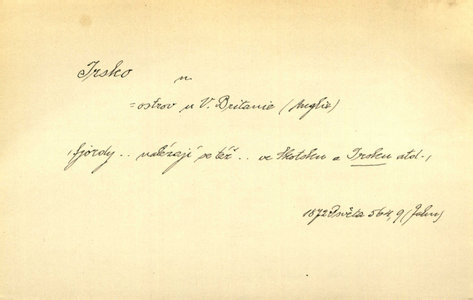 Irsko n
= ostrov u V. Britanie (Anglie)
‚fjordy .. nalézají se též .. ve Skotsku a Irsku atd.‚
1872 Osvěta 564, 9 (Jahn)